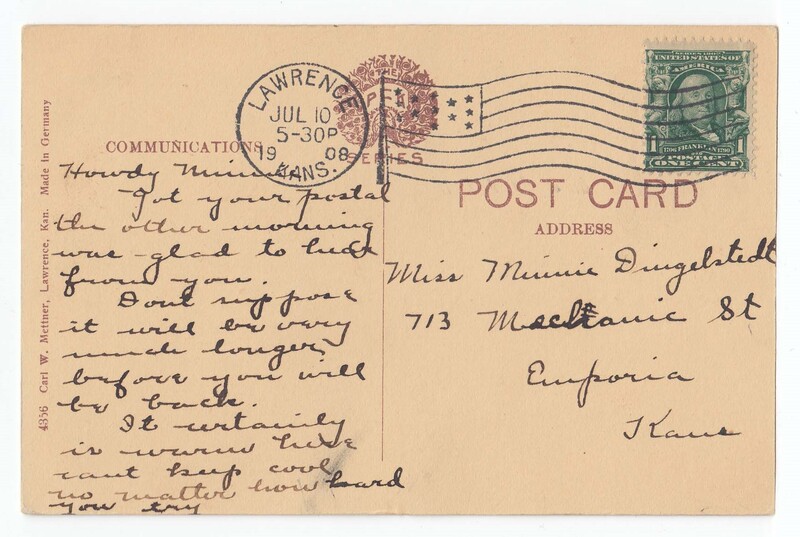 4356 Carl W. Mettner, Lawrence, Kan. Made in Germany
COMMUNICATIONS
Howdy Minnie
Got your postal
the other morning
was glad to hear
from you.
Dont suppose
it will be very
much longer
before you will
be back.
It certainly
is warm here
cant keep cool
no matter how hard
you try
LAWRENCE
JUL 10
5-30P
1908
KANS.
THE
SERIES
UNITED STATES OF
AMERICA
1
FRANKLIN
POSTAGE
ONE CENT
POST CARD
ADDRESS
Miss Minnie Dingelstedt
713 Mechanic St
Emporia
Kans